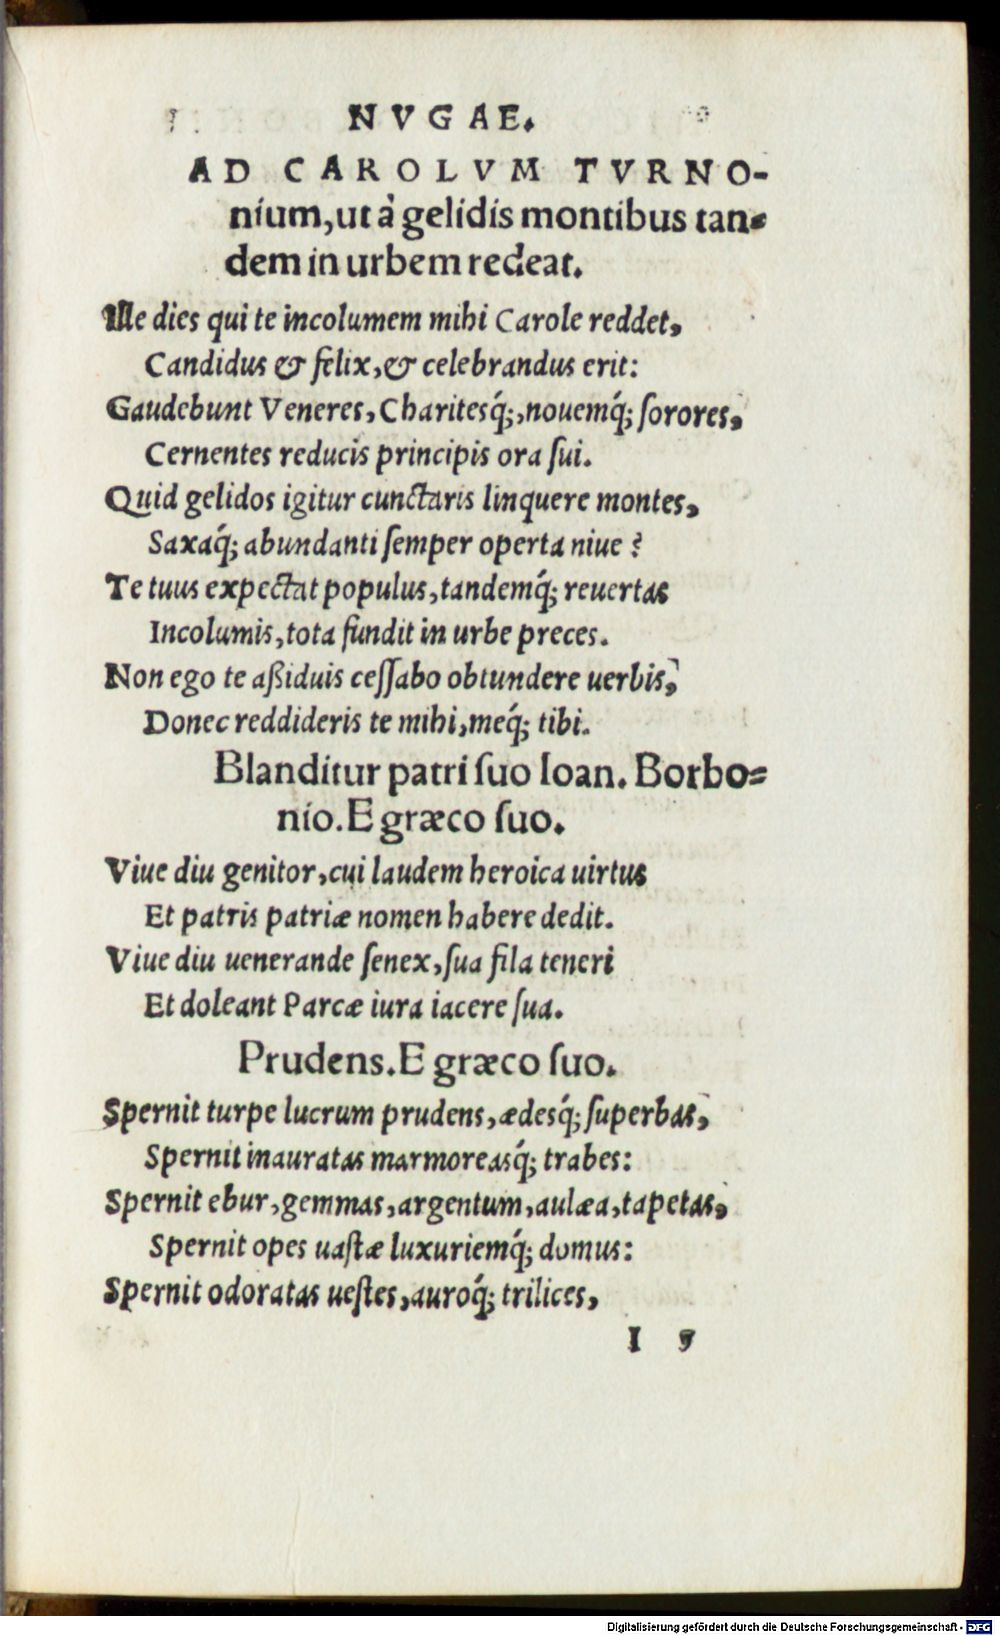 NVGAE.
AD CAROLVM TVRNO-
nium, ut à gelidis montibus tan-
dem in urbem redeat.
Ille dies qui te incolumem mihi Carole reddet,
Candidus & felix, & celebrandus erit:
Gaudebunt Veneres, Charitesq́;, nouemq́; ſorores,
Cernentes reducis principis ora ſui.
Quid gelidos igitur cunctaris linquere montes,
Saxaq́; abundanti ſemper operta niue?
Te tuus expectat populus, tandemq́; reuertas
Incolumis, tota fundit in urbe preces.
Non ego te aßiduis ceſſabo obtundere uerbis,
Donec reddideris te mihi, meq́; tibi.
Blanditur patri ſuo Ioan. Borbo-
nio. E græco ſuo.
Viue diu genitor, cui laudem heroica uirtus
Et patris patriæ nomen habere dedit.
Viue diu uenerande ſenex, ſua fila teneri
Et doleant Parcæ iura iacere ſua.
Prudens. E græco ſuo.
Spernit turpe lucrum prudens, ædesq́; ſuperbas,
Spernit inauratas marmoreasq́; trabes:
Spernit ebur, gemmas, argentum, aulæa, tapetas,
Spernit opes uaſtæ luxuriemq́; domus:
Spernit odoratas ueſtes, auroq́; trilices,
I 5
Digitalisierung gefördert durch die Deutsche Forschungsgemeinschaft - DFG